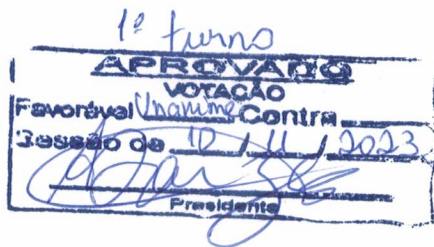 1º turno
APROVADO
VOTAÇÃO
Favorável Unanime Contra
Sessão de 10 / 11 / 2023
Presidente